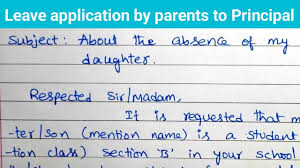 Leave application by parents to Principal
Subject: About the absence of my
daughter.
Respected Sir/Madam,
It is requested that m
-ter/son (mention name) is a student
tion class) section 'B' in your school